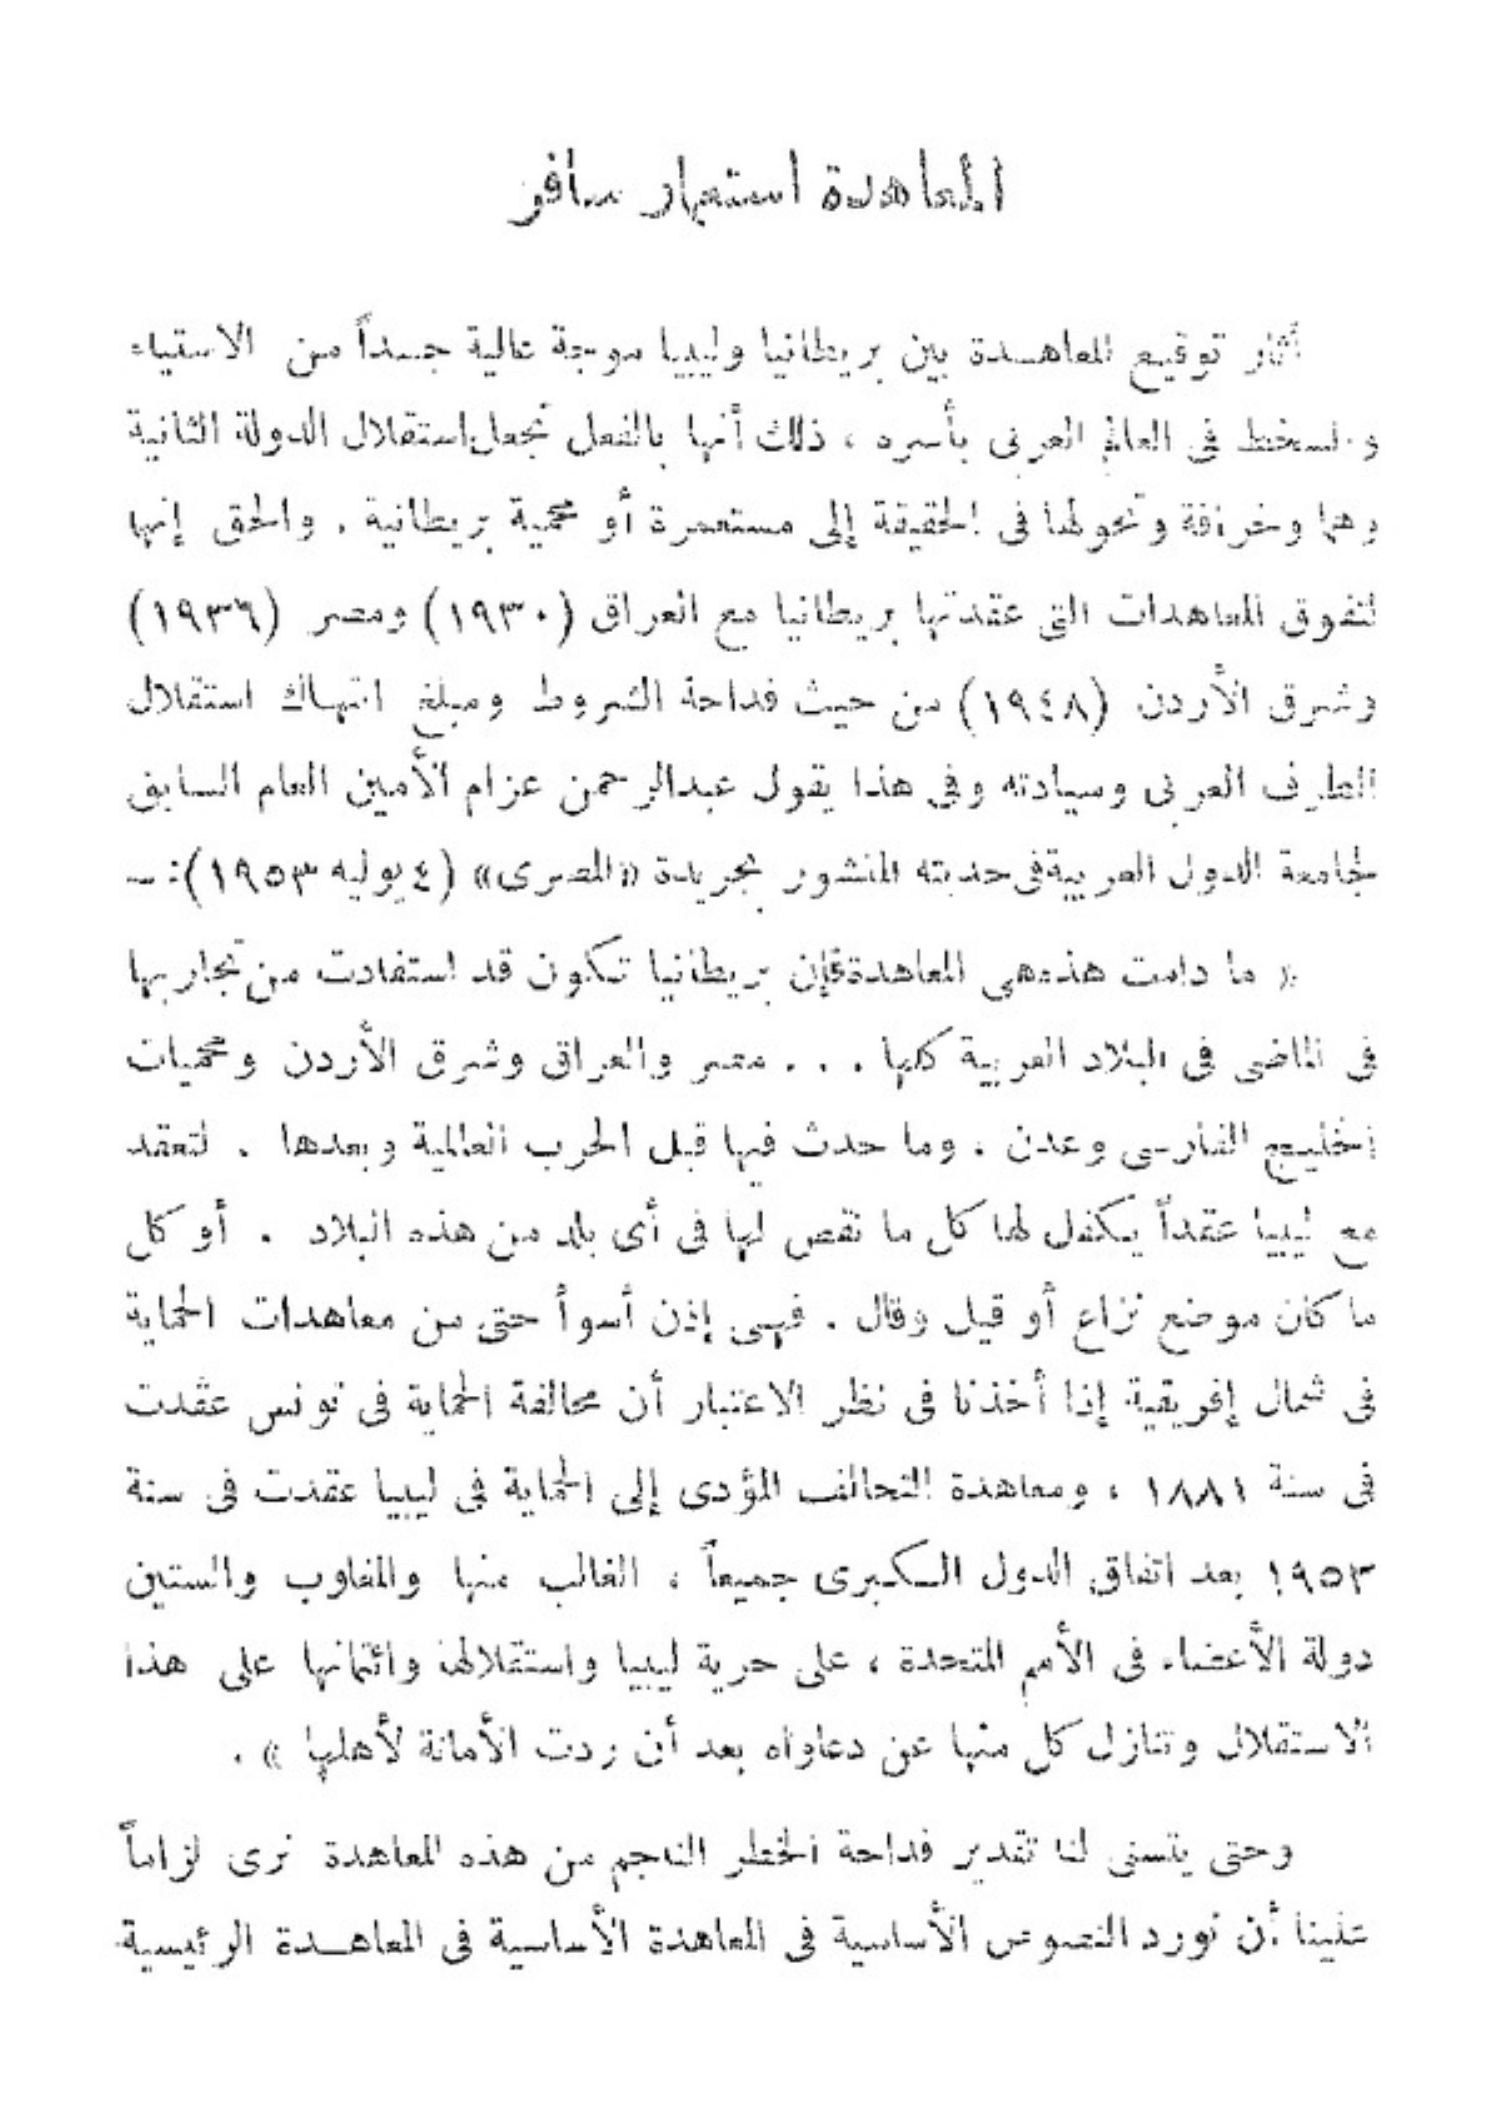 المعاهدة استعمار سافر
أثار توقيع المعاهدة بين بريطانيا وليبيا موجة عالية جداً من الاستياء
والسخط فى العالم العربى بأسره ، ذلك أنها بالفعل تجعل استقلال الدولة الثانية
وهما وخرافة وتحولها فى الحقيقة إلى مستعمرة أو محمية بريطانية . والحق إنها
لتفوق المعاهدات التى عقدتها بريطانيا مع العراق (١٩٣٠) ومصر (١٩٣٦)
وشرق الأردن (١٩٤٨) من حيث فداحة الشروط ومبلغ انتهاك استقلال
الطرف العربى وسيادته وفى هذا يقول عبدالرحمن عزام الأمين العام السابق
لجامعة الدول العربية فى حديثه المنشور بجريدة «المصرى» (٤ يوليه ١٩٥٣): –
« ما دامت هذه هى المعاهدة فإن بريطانيا تكون قد استفادت من تجاربها
فى الماضى فى البلاد العربية كلها . . . مصر والعراق وشرق الأردن ومحميات
الخليج الفارسى وعدن ، وما حدث فيها قبل الحرب العالمية وبعدها . لتعقد
مع ليبيا عقداً يكفل لها كل ما نقص لها فى أى بلد من هذه البلاد . أو كل
ما كان موضع نزاع أو قيل وقال . فهى إذن أسوأ حتى من معاهدات الحماية
فى شمال إفريقية إذا أخذنا فى نظر الاعتبار أن محالفة الحماية فى تونس عقدت
فى سنة ١٨٨١ ، ومعاهدة التحالف المؤدى إلى الحماية فى ليبيا عقدت فى سنة
١٩٥٣ بعد اتفاق الدول الكبرى جميعاً ، الغالب منها والمغلوب والستين
دولة الأعضاء فى الأمم المتحدة ، على حرية ليبيا واستقلالها وائتمانها على هذا
الاستقلال وتنازل كل منها عن دعاواه بعد أن ردت الأمانة لأهلها » .
وحتى يتسنى لنا تقدير فداحة الخطر الناجم من هذه المعاهدة نرى لزاماً
علينا أن نورد النصوص الأساسية فى المعاهدة الأساسية فى المعاهدة الرئيسية